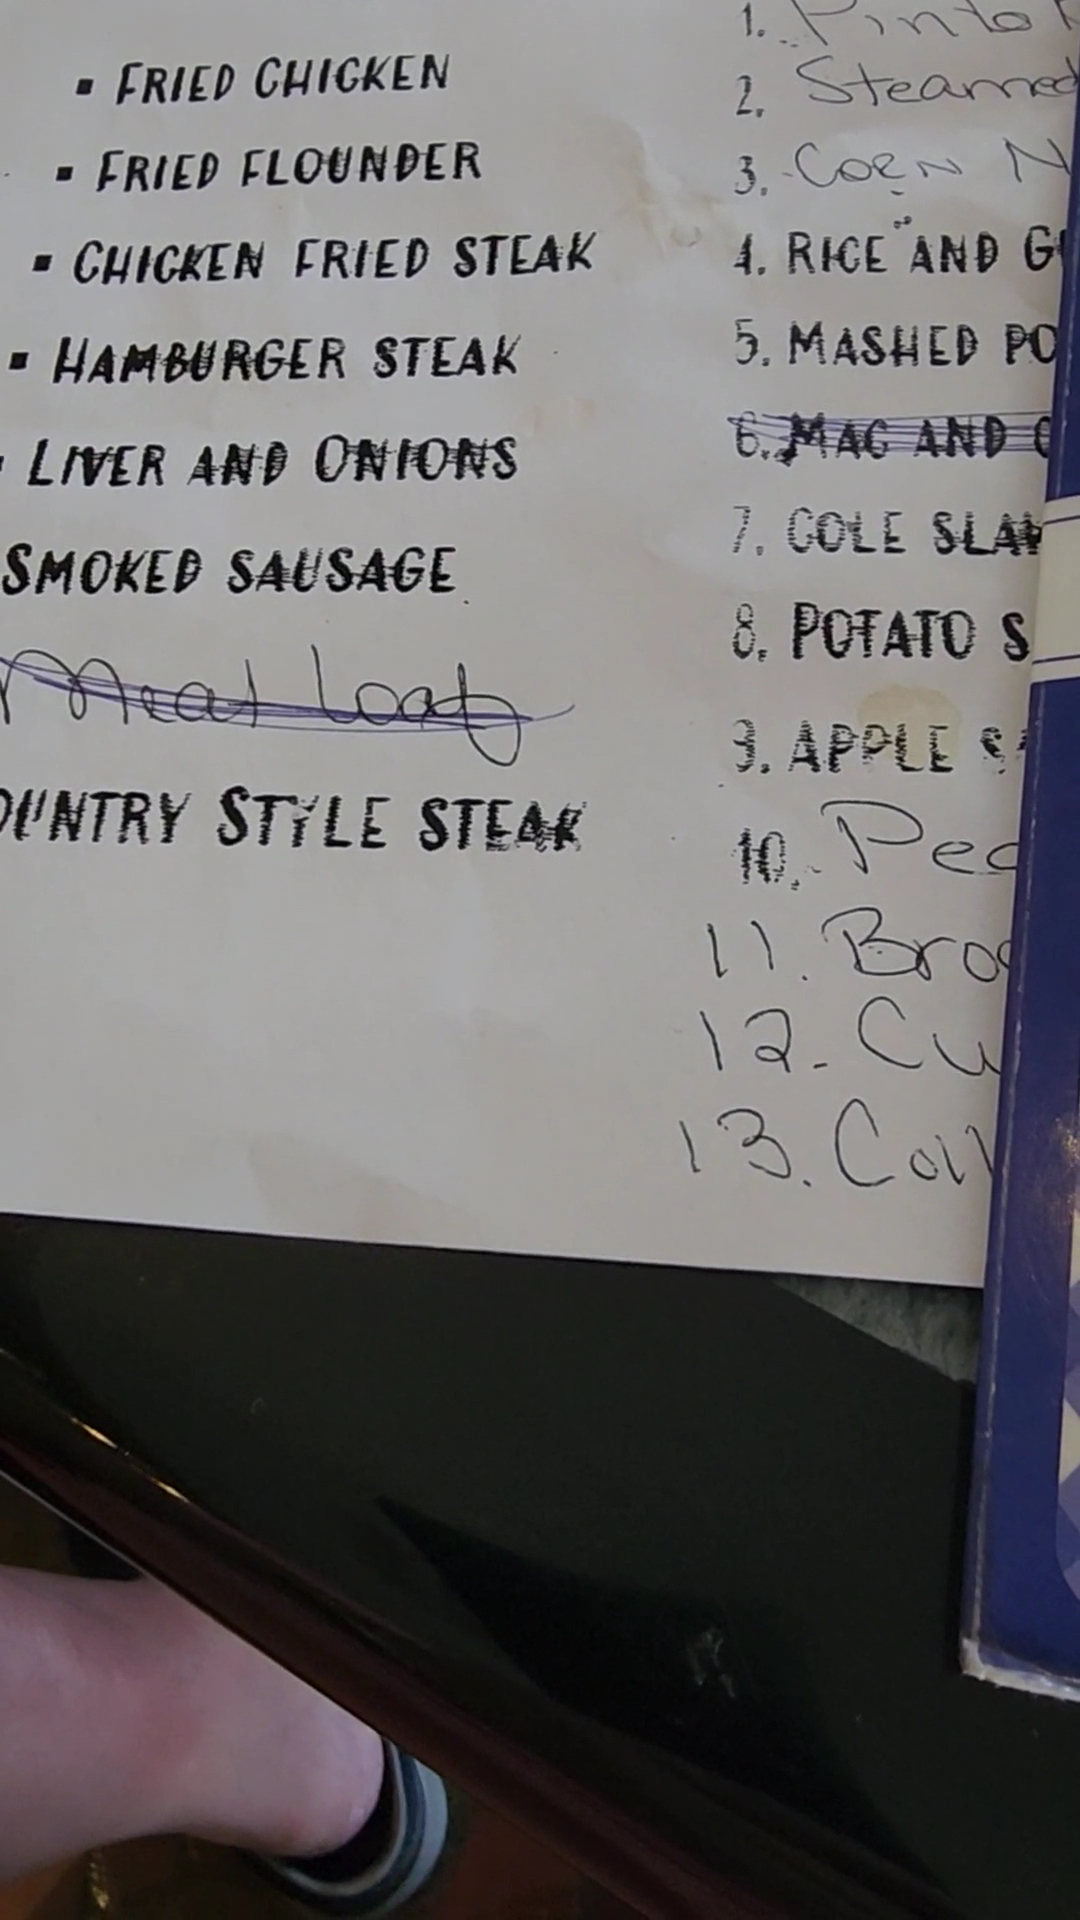 ▪ FRIED CHICKEN
▪ FRIED FLOUNDER
▪ CHICKEN FRIED STEAK
▪ HAMBURGER STEAK
▪ LIVER AND ONIONS
SMOKED SAUSAGE
Meat loaf
OUNTRY STYLE STEAK
1. Pinto
2. Steamed
3. CORN N
4. RICE AND G
5. MASHED PO
6. MAC AND C
7. COLE SLAW
8. POTATO S
9. APPLE SA
10. Pea
11. Broc
12. Cu
13. Coll